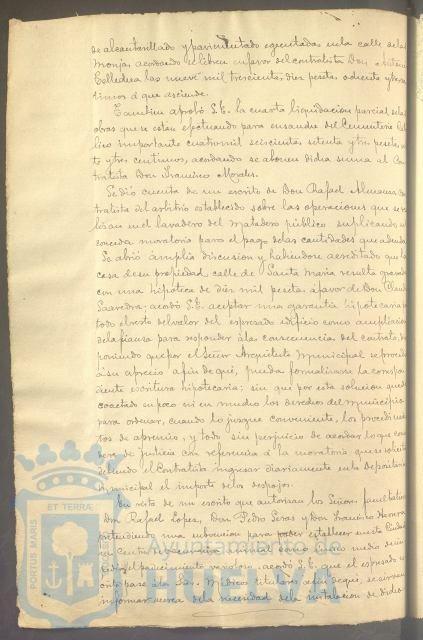 de alcantarillado y pavimentado ejecutadas en la calle de las
Monjas, acordando se libren en favor del contratista Don Antonio
Colledera las nueve mil trescientas diez pesetas ochenta y
timos á que asciende.
Tambien aprobó S.E. la cuarta liquidacion parcial de las
obras que se estan efectuando para ensanche del Cementerio Ca
lico importante cuatro mil seiscientas setenta y tres pesetas
te y tres centimos, acordando se abonen dicha suma al Con
tratista Don Francisco Morales.
Se dió cuenta de un escrito de Don Rafael Almansa, con
tratista del arbitrio establecido sobre las operaciones que se
en el lavadero del Matadero público suplicando se
conceda moratoria para el pago de las cantidades que adeuda
Se abrió amplia discusion y habiendose acreditado que la
casa de su propiedad calle de Santa Maria resulta gravada
con una hipoteca de diez mil pesetas á favor de Don
Saavedra: acordó S.E. aceptar una garantia hipotecaria
todo el resto del valor del expresado edificio como ampliacion
de la fianza para responder á las consecuencias del contrato, dis
poniendo que por el Señor Arquitecto Municipal se proceda
á su aprecio á fin de que pueda formalizarse la correspon
diente escritura hipotecaria; sin que por esta solucion quede
coactado en poco ni en mucho los derechos del municipio
para ordenar, cuando lo juzgue conveniente, los procedimien
tos de apremio, y todo sin perjuicio de acordar lo que con
de justicia con referencia á la moratoria que se solicita
debiendo el Contratista ingresar diariamente en la Depositaria
Municipal el importe de los despojos.
de un escrito que autorizan los Señores
Don Rafael Lopez, Don Pedro Don Francisco Herrera
pretendiendo una subvencion para poder establecer en esta Ciudad
un Centro
acordó S.E. que el expresado es
crito pase á los Sres. Medicos titulares á fin de que, se sirvan
informar acerca de la necesidad de la instalacion de dicho
PORTUS MARIS
ET TERRA
Ayuntamiento de